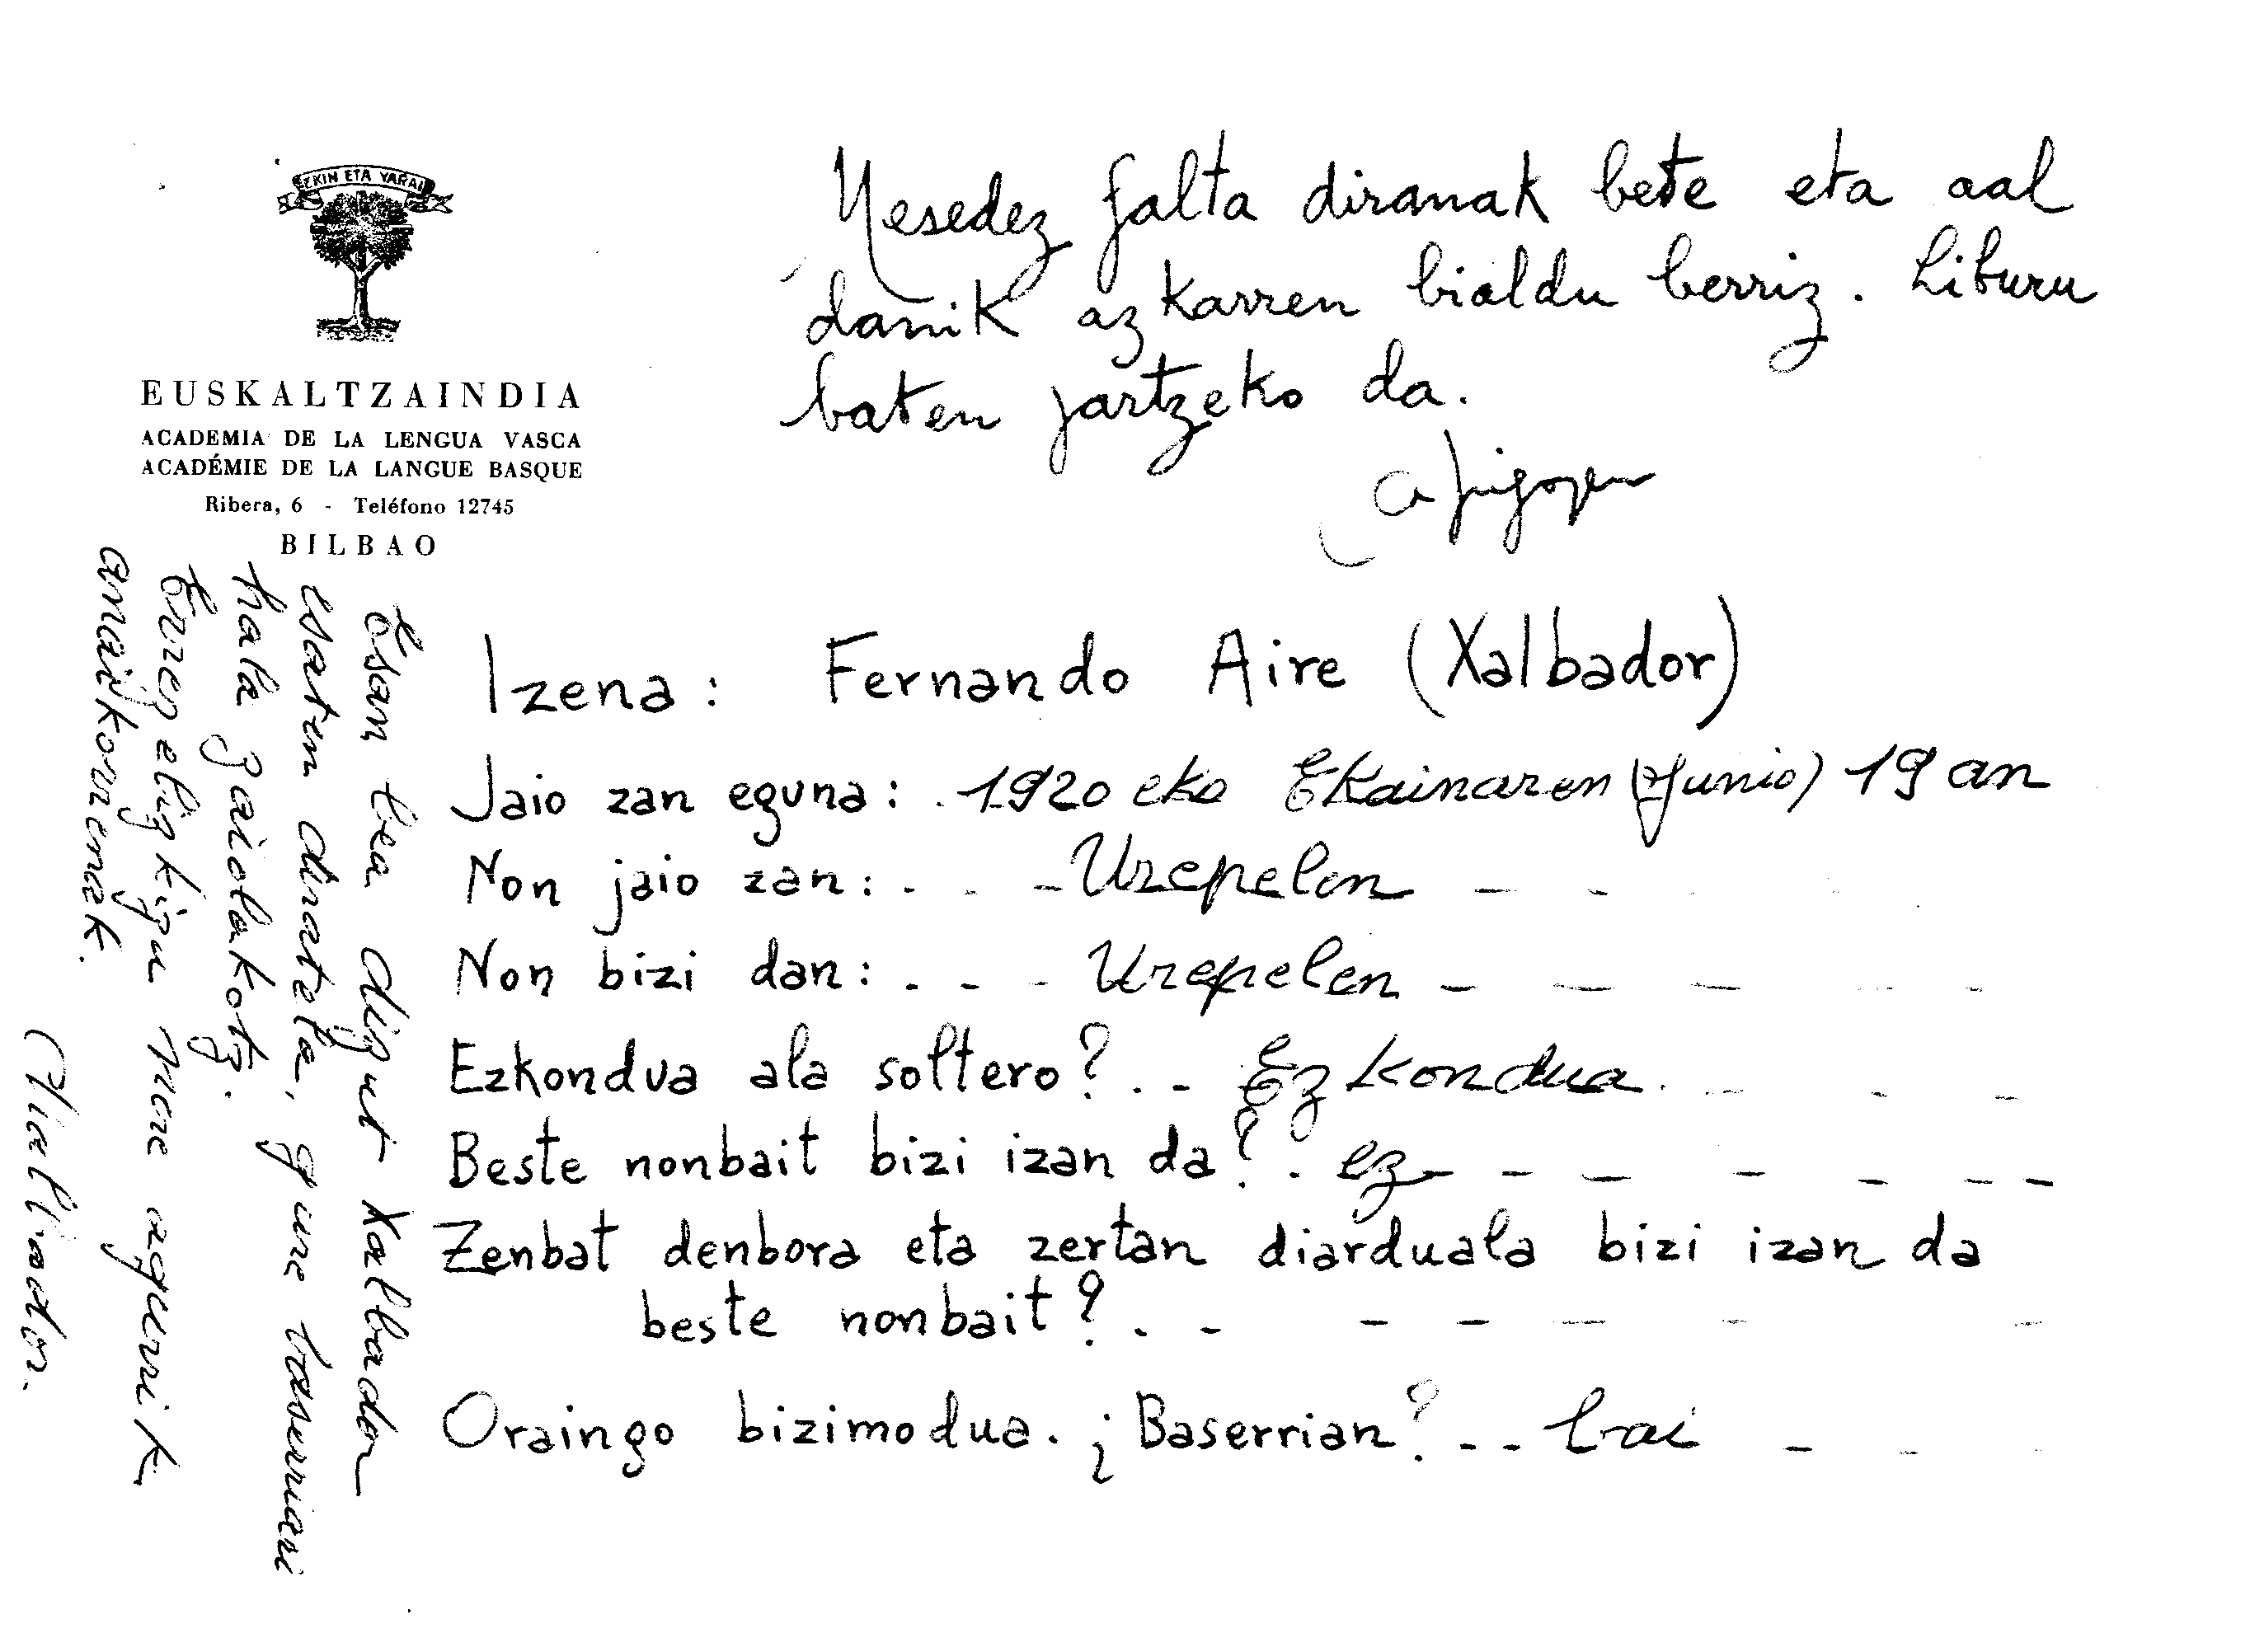 EKIN ETA YARAI
EUSKALTZAINDIA
ACADEMIA DE LA LENGUA VASCA
ACADÉMIE DE LA LANGUE BASQUE
Ribera, 6 - Teléfono 12745
BILBAO
Mesedez falta diranak bete eta aal
danik azkarren bialdu berriz. Liburu
baten jartzeko da.
Izena: Fernando Aire (Xalbador)
Jaio zan eguna: 1920 eko Ekainaren (Junio) 19 an
Non jaio zan: . - - Urepelen - -
Non bizi dan: . - - Urepelen - - - - -
Ezkondua ala soltero? . - Ezkondua. - - -
Beste nonbait bizi izan da? . ez - - - - - - -
Zenbat denbora eta zertan diarduala bizi izan da
beste nonbait? . - - - - - -
Oraingo bizimodua. ¿Baserrian? - - bai - -
Esan bea dizut Xalbador
esaten dnatela, gure baserriari
hala zaiolakotz.
Errez ebizkizu nore agerrik
anaijkorrenak.